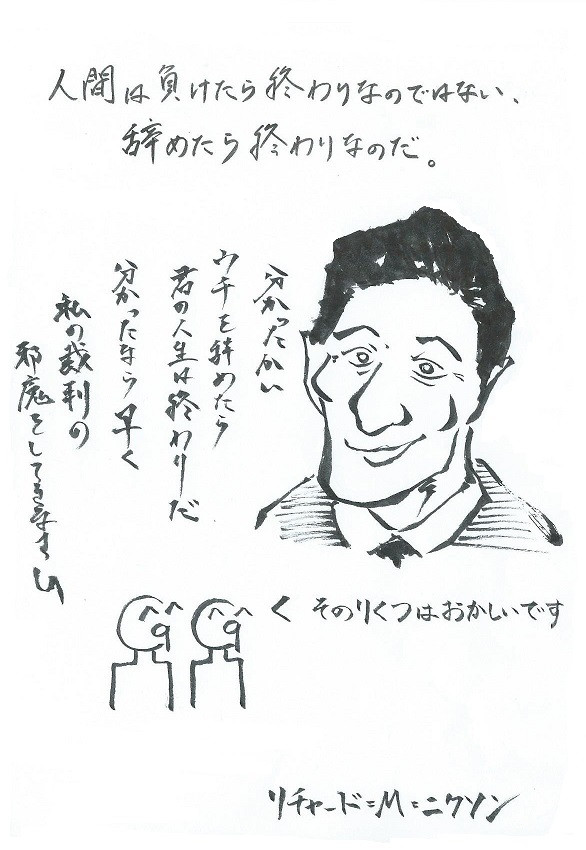 人間は負けたら終わりなのではない、
辞めたら終わりなのだ。
分かったかい
ウチを辞めたら
君の人生は終わりだ
分かったなら早く
私の裁判の
邪魔をしてきなさい
く そのりくつはおかしいです
リチャード=M=ニクソン